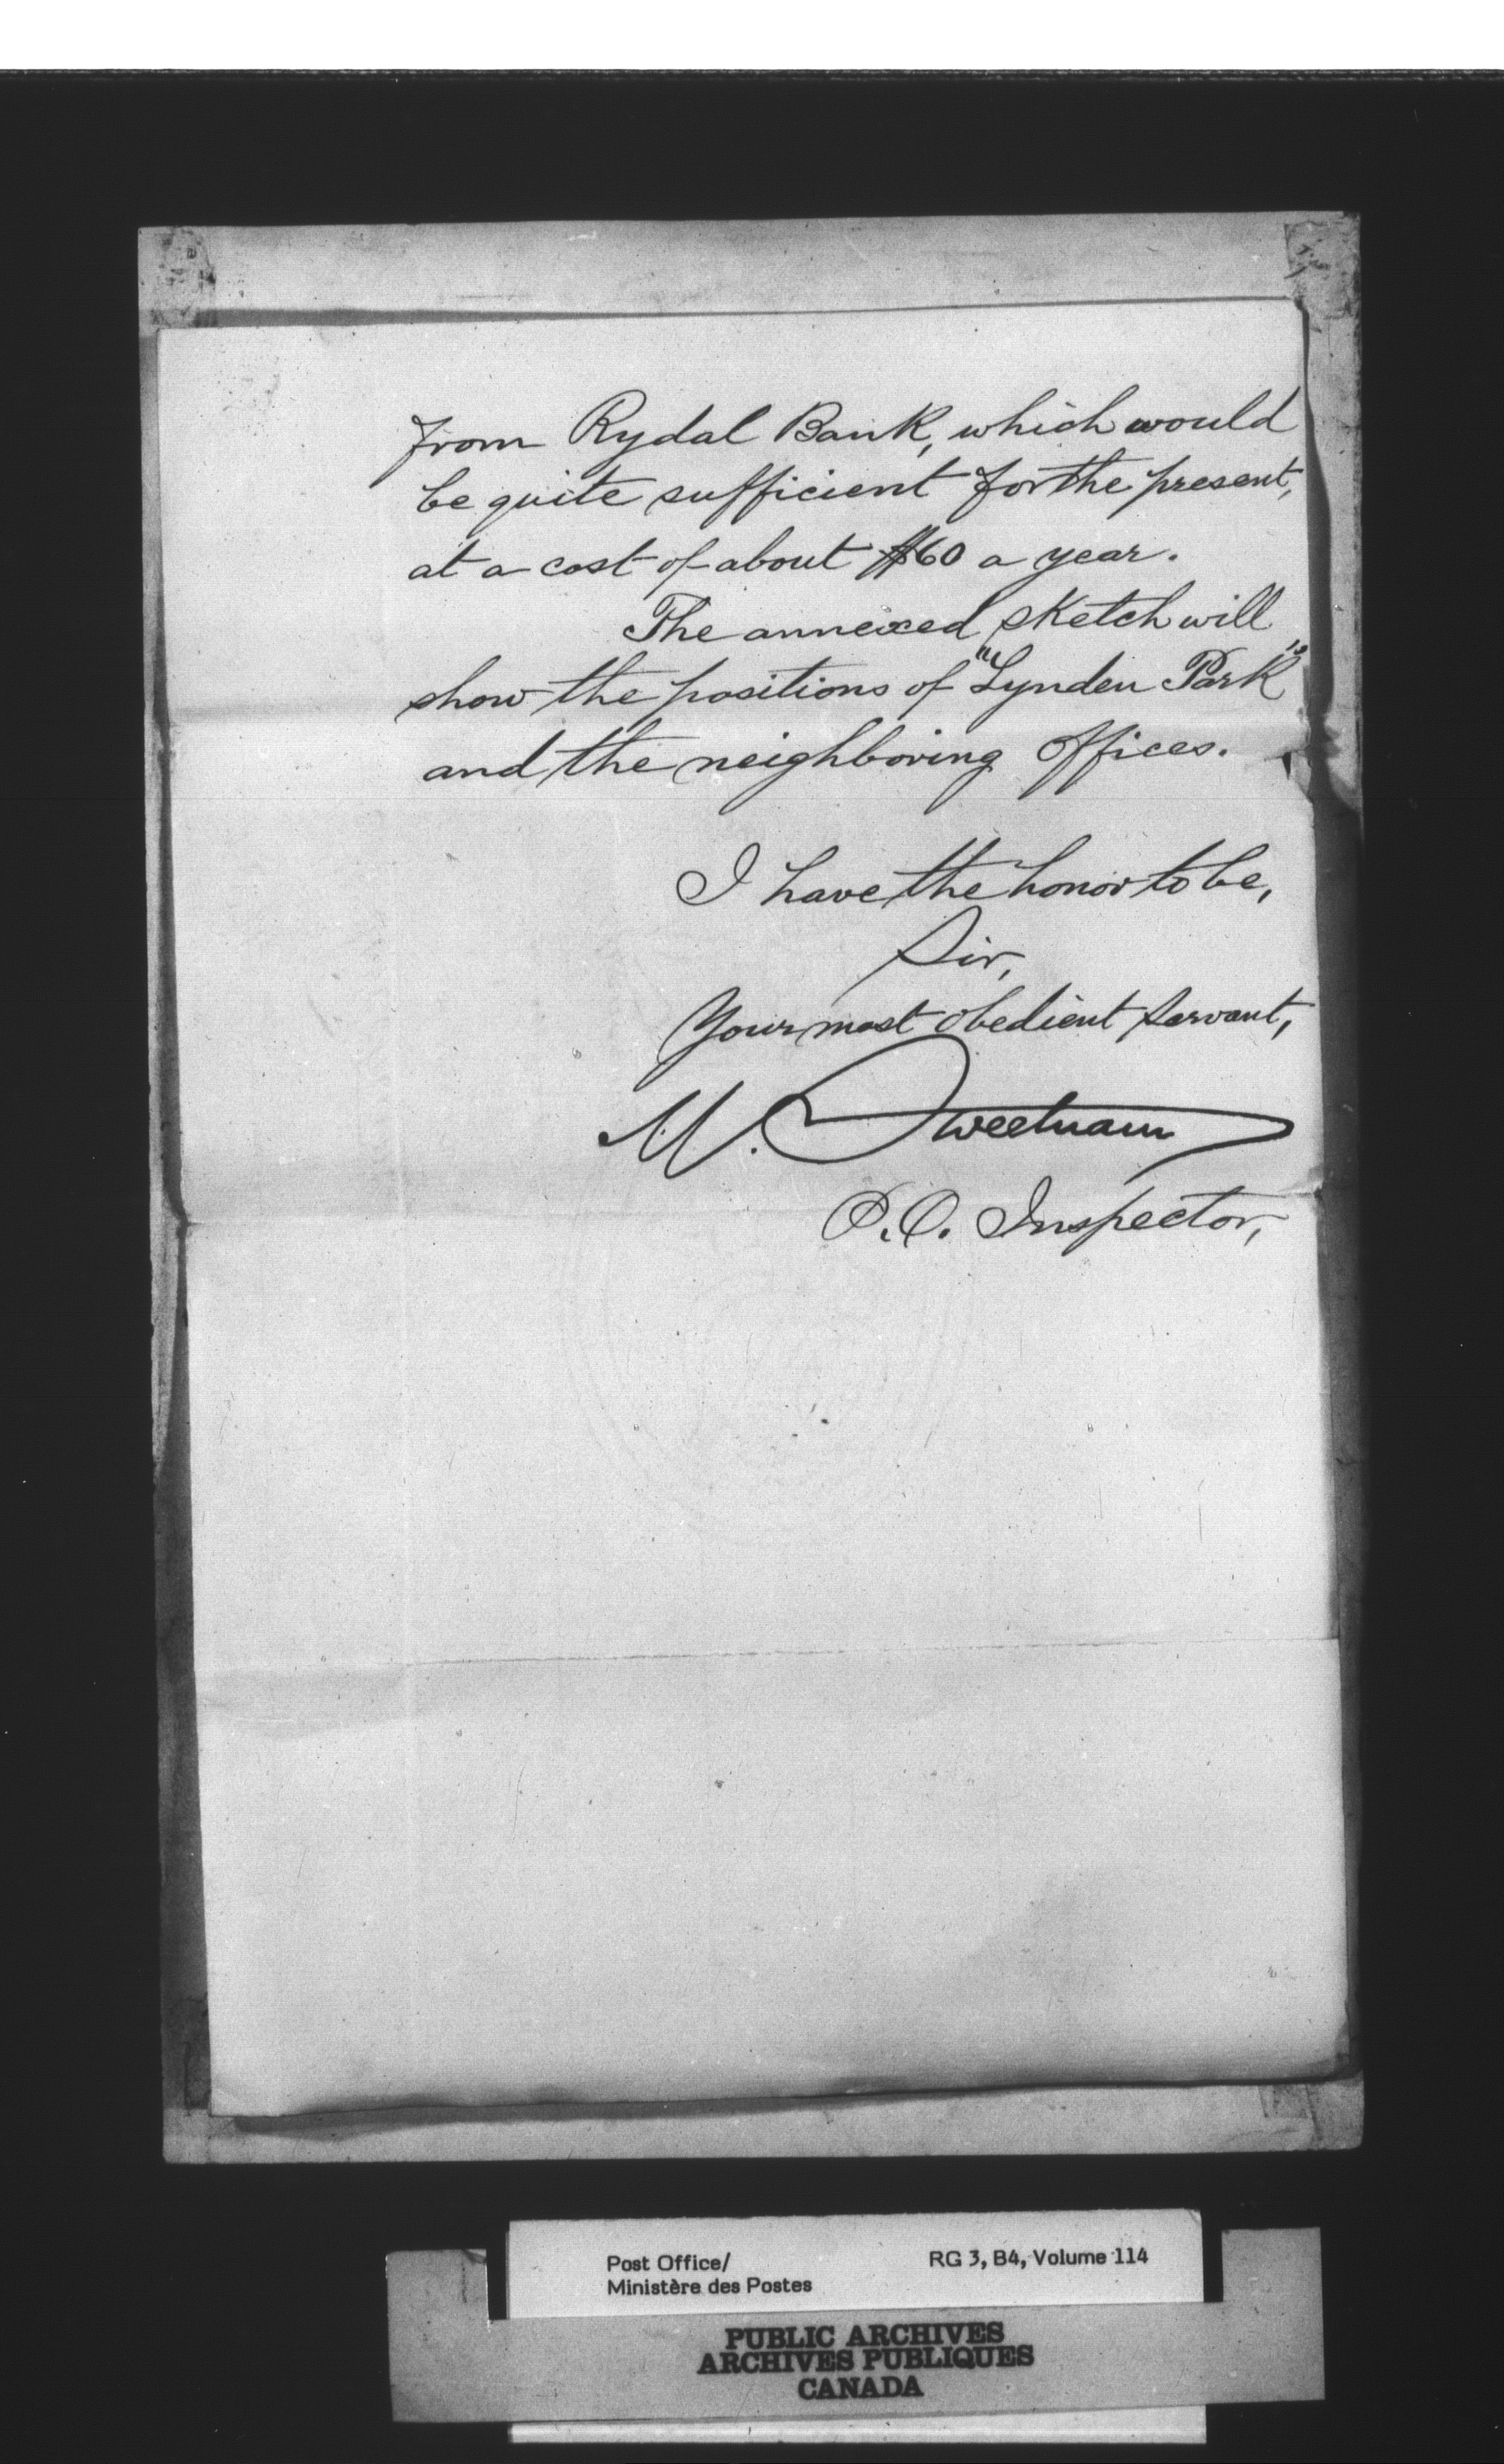 from Rydal Bank, which would
be quite sufficient for the present,
at a cost of about $60 a year.
The annexed sketch will
show the positions of "Lynden Park"
and the neighboring offices.
I have the honor to be,
Sir,
Your most obedient servant,
M. Sweetnam
P.O. Inspector,
Post Office/
Ministère des Postes
RG 3, B4, Volume 114
PUBLIC ARCHIVES
ARCHIVES PUBLIQUES
CANADA